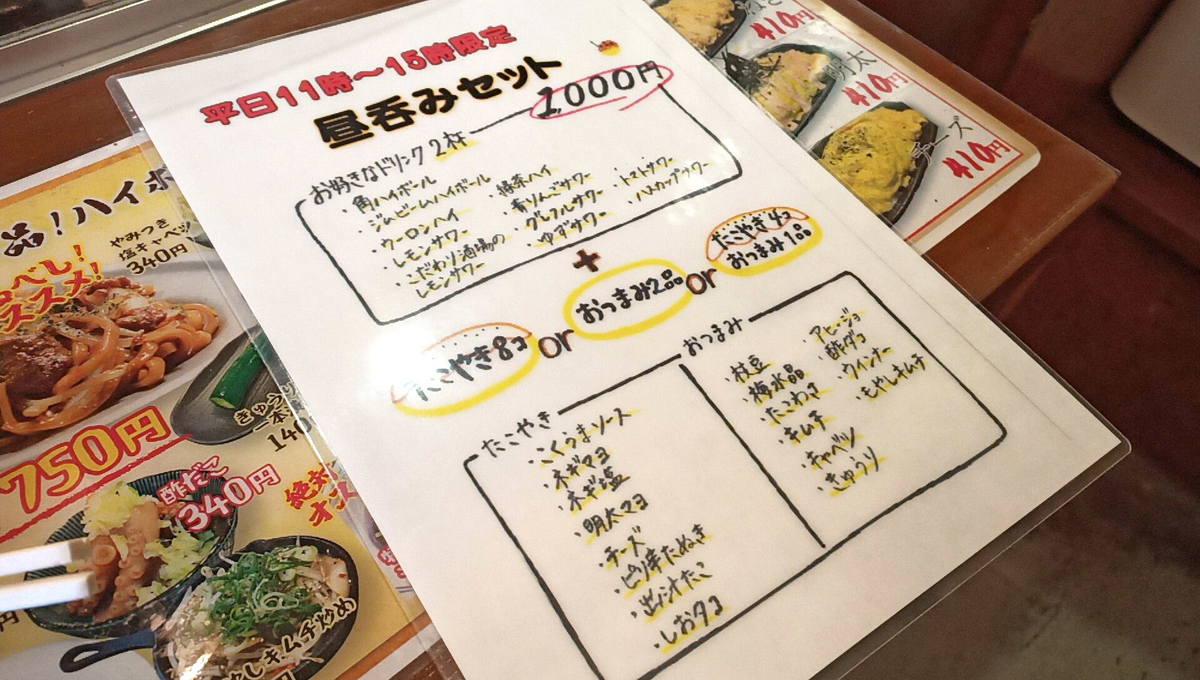 平日11時～15時限定
昼呑みセット
1,000円
お好きなドリンク2杯
・角ハイボール
・ジムビームハイボール
・ウーロンハイ
・レモンサワー
・こだわり酒場の
レモンサワー
・緑茶ハイ
・青りんごサワー
・グレフルサワー
・ゆずサワー
・トマトサワー
・ハスカップサワー
+
たこやき8コ
or
おつまみ2品
or
たこやき4コ
おつまみ1品
たこやき
・こくうまソース
・ネギマヨ
・ネギ塩
・明太マヨ
・チーズ
・ピリ辛たぬき
・出汁たこ
・しおタコ
おつまみ
・枝豆
・梅水晶
・たこわさ
・キムチ
・キャベツ
・きゅうり
・アヒージョ
・酢ダコ
・ウインナー
・もやしキムチ
品！ハイボ
やみつき
塩キャベツ
340円
べし！
ススメ！
750円
きゅうり
一本
140
酢だこ
340円
絶対
オス
やしキムチ炒め
円
410円
明太
410円
チーズ
410円